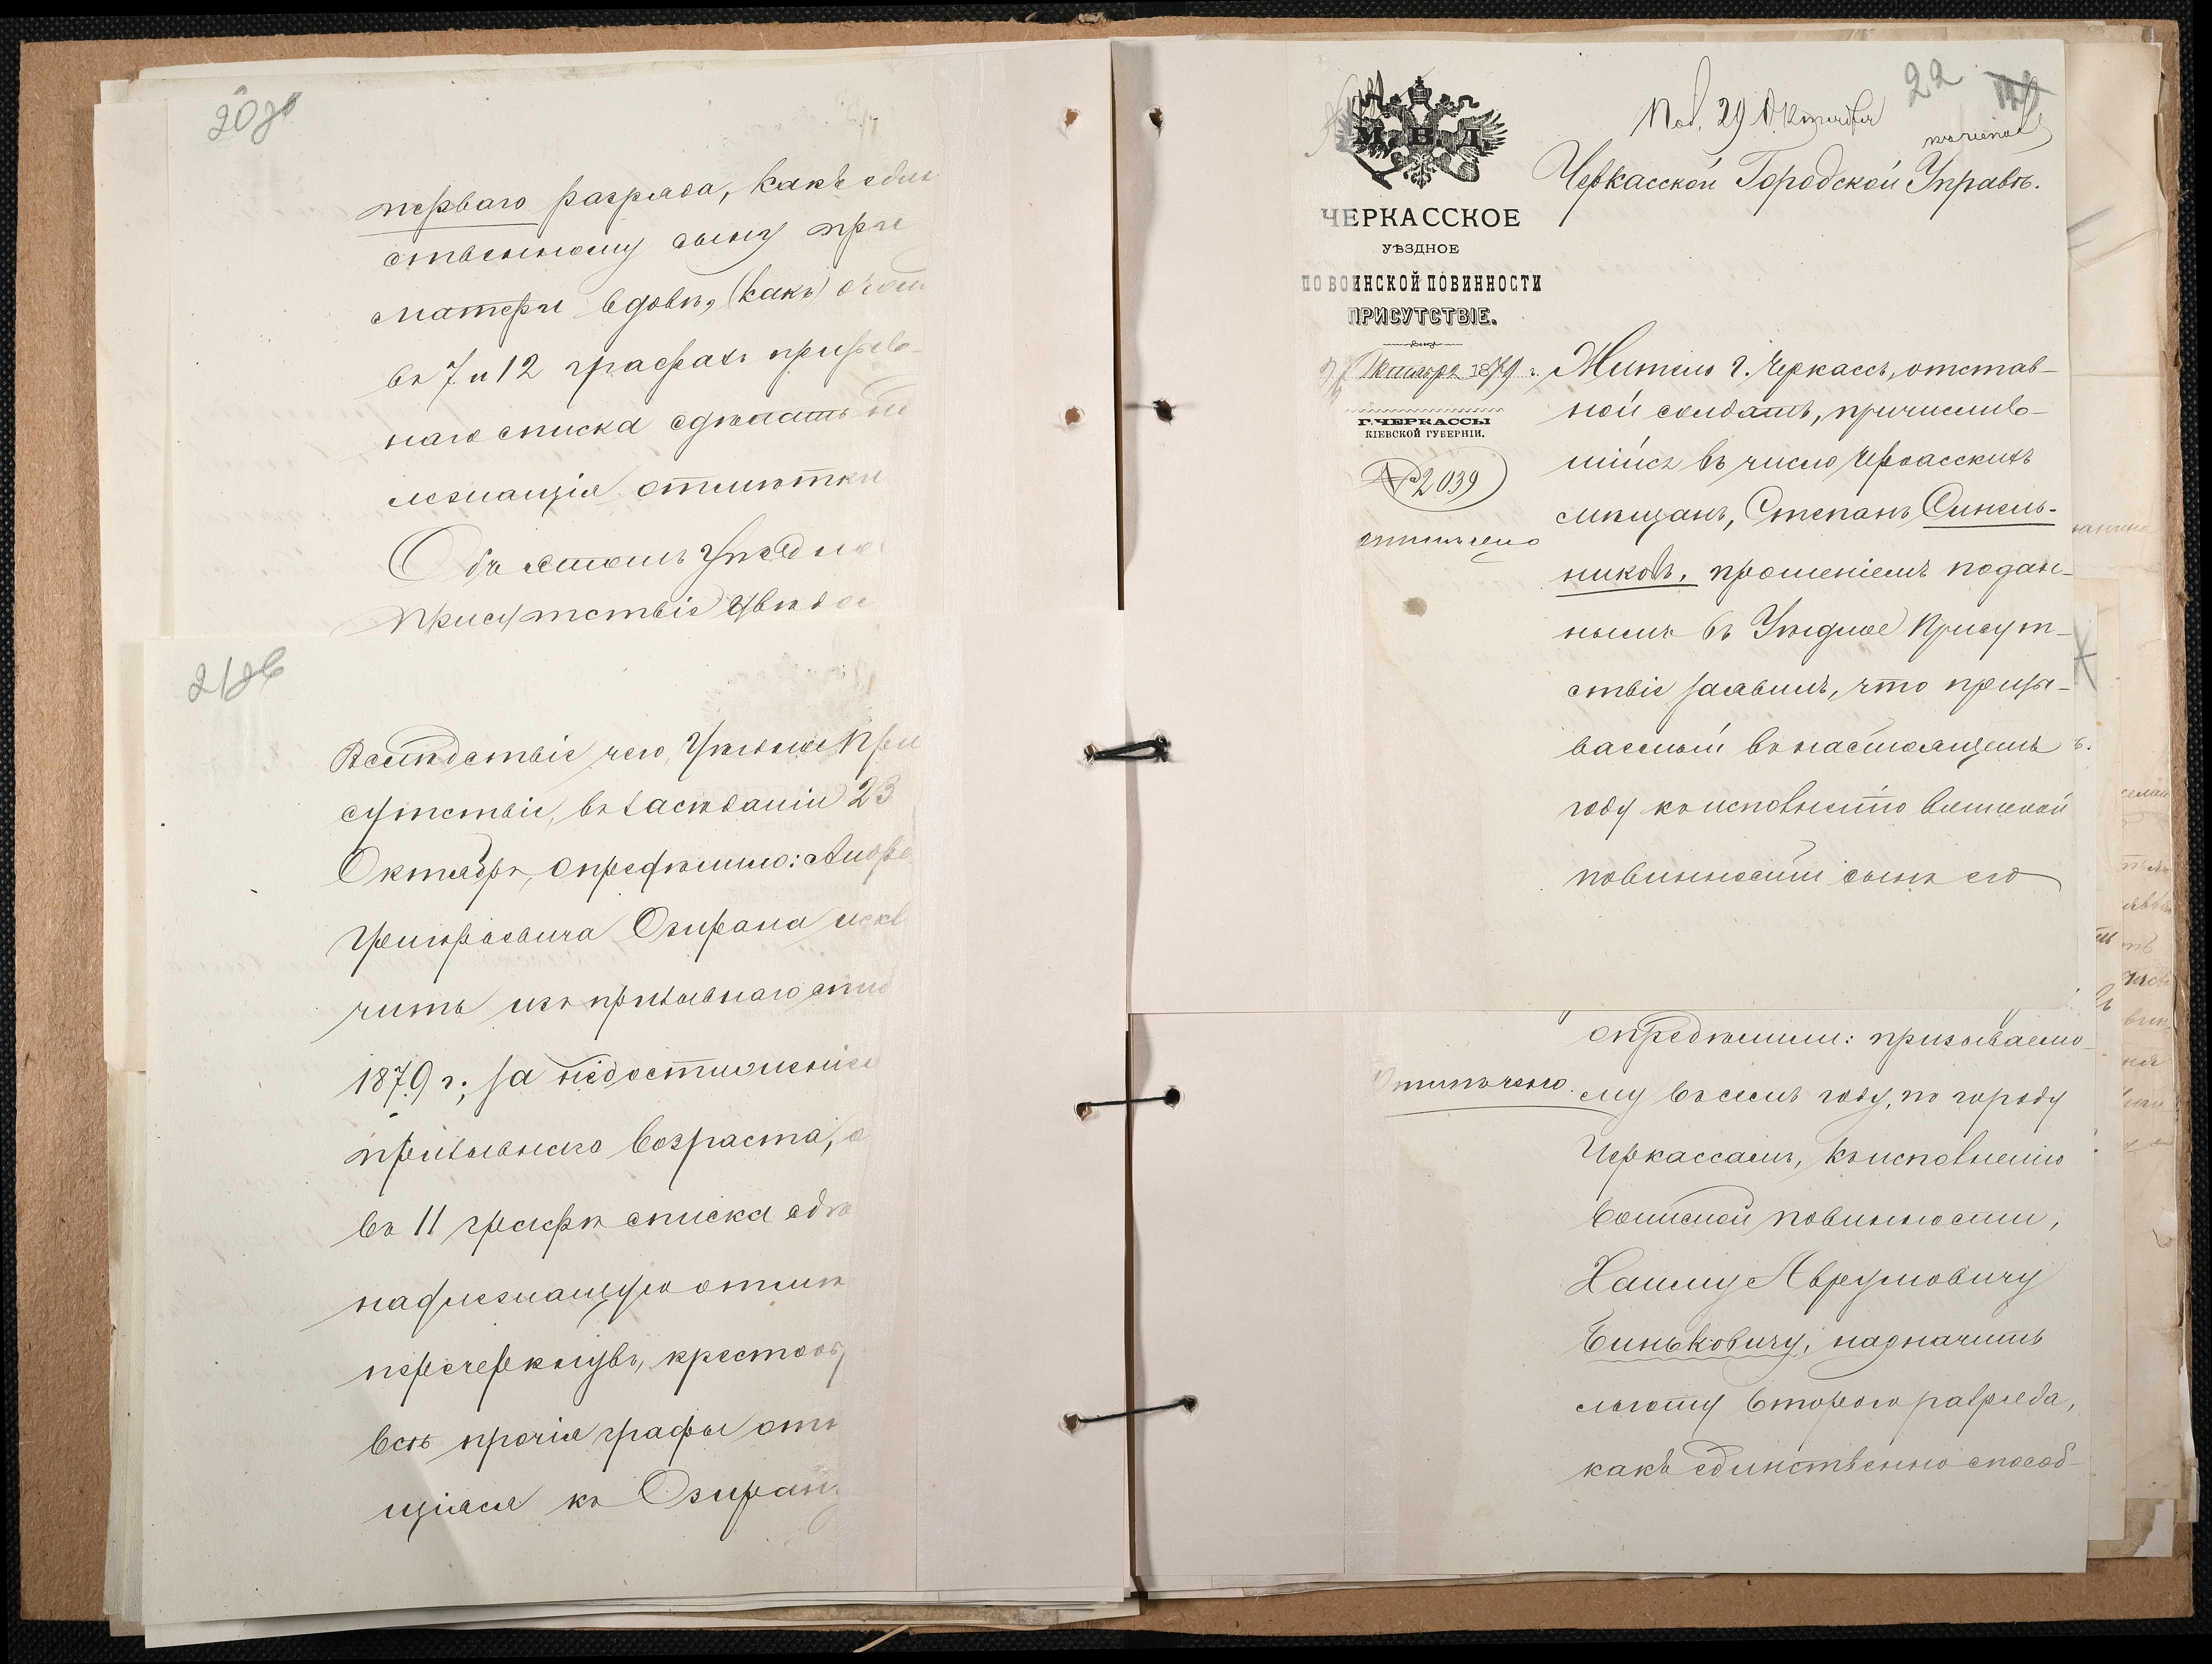 20 об
перваго разряда, какъ един
ственному сыну при
матери вдовѣ, (какъ) о чемъ
въ 7 и 12 графахъ призыв-
наго списка сдѣлать
лежащія отмѣтки
Объ этомъ Уѣздное
Присутствіе увѣдо
21 об
Вслѣдствіе чего, Уѣздное При
сутствіе, въ засѣданіи 23
Октября, опредѣлило:
Григорьевича Озирана искл
чить изъ призывнаго списк
1879 г., за недостиженіем
призывнаго возраста, о
въ 11 графѣ списка сдѣ
надлежащую отмѣт
перечеркнувъ, крестооб
всѣ прочія графы отн
щіяся къ Озиран
22
Пол. 29 Октября
Черкасской Городской Управѣ.
М В Д
ЧЕРКАССКОЕ
УѢЗДНОЕ
ПО ВОИНСКОЙ ПОВИННОСТИ
ПРИСУТСТВІЕ.
Октября 1879 г.
Г. ЧЕРКАССЫ
КІЕВСКОЙ ГУБЕРНІИ.
№ 2039
отмѣчено
Житель г. Черкассъ, отстав-
ной солдатъ, причислив-
шійся въ число Черкасскихъ
мѣщанъ, Степанъ Синель-
никовъ, прошеніемъ подан-
нымъ въ Уѣздное Присут-
ствіе заявилъ, что призы-
ваемый въ настоящемъ
году къ исполненію воинской
повинности сынъ его
опредѣлили: призываемо-
Отмѣчено.
му въ семъ году, по городу
Черкассамъ, къ исполненію
воинской повинности,
Хаиму Аврумовичу
Биньковичу, назначить
льготу втораго разряда,
какъ единственно способ-